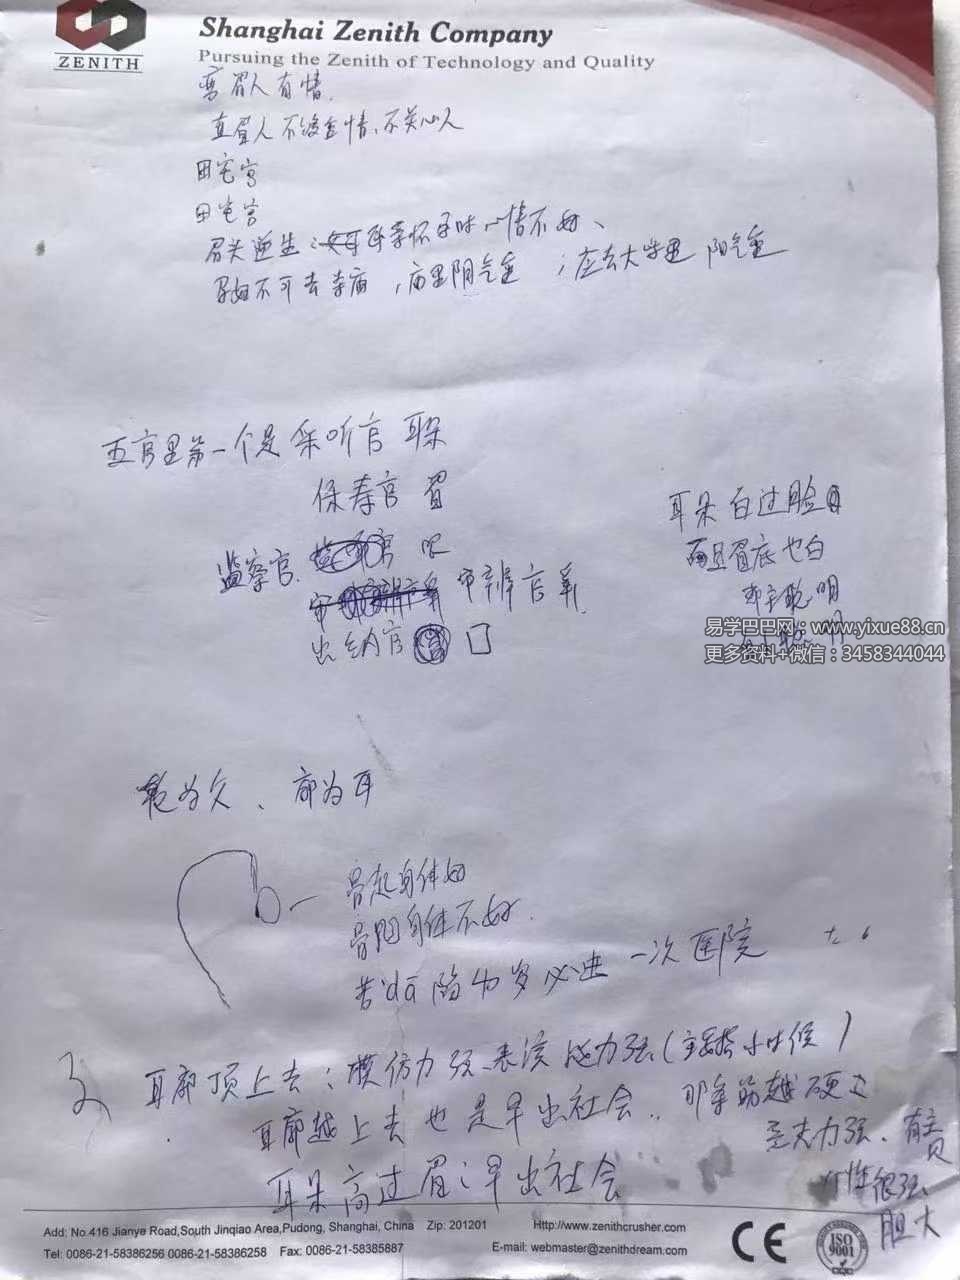 Shanghai Zenith Company
Pursuing the Zenith of Technology and Quality
ZENITH
弯眉人有情.
直眉人不注重情、不关心人
田宅宫
田宅宫
眉头逆生：母亲怀孕时心情不好、
孕妇不可去寺庙，庙里阴气重；应去大学里 阳气重
五官里第一个是 采听官 耳朵
保寿官 眉
监察官. 官 眼
审辨官 鼻
出纳官 口
耳朵白过脸
而且眉底也白
聪明
易学巴巴网：www.yixue88.cn
更多资料+微信：3458344044
为父、廓为耳
骨起身体好
骨陷身体不好.
若dā陷 岁必进一次医院
耳廓顶上去：模仿力强、表演能力强（主要指小时候）
耳廓越上去也是早出社会.. 那条筋越硬
力强、有主见
个性很强、
胆大
耳朵高过眉：早出社会
Add: No.416 Jianye Road,South Jinqiao Area,Pudong, Shanghai, China Zip: 201201 Http://www.zenithcrusher.com
Tel: 0086-21-58386256 0086-21-58386258 Fax: 0086-21-58385887 E-mail: webmaster@zenithdream.com
CE
ISO
9001